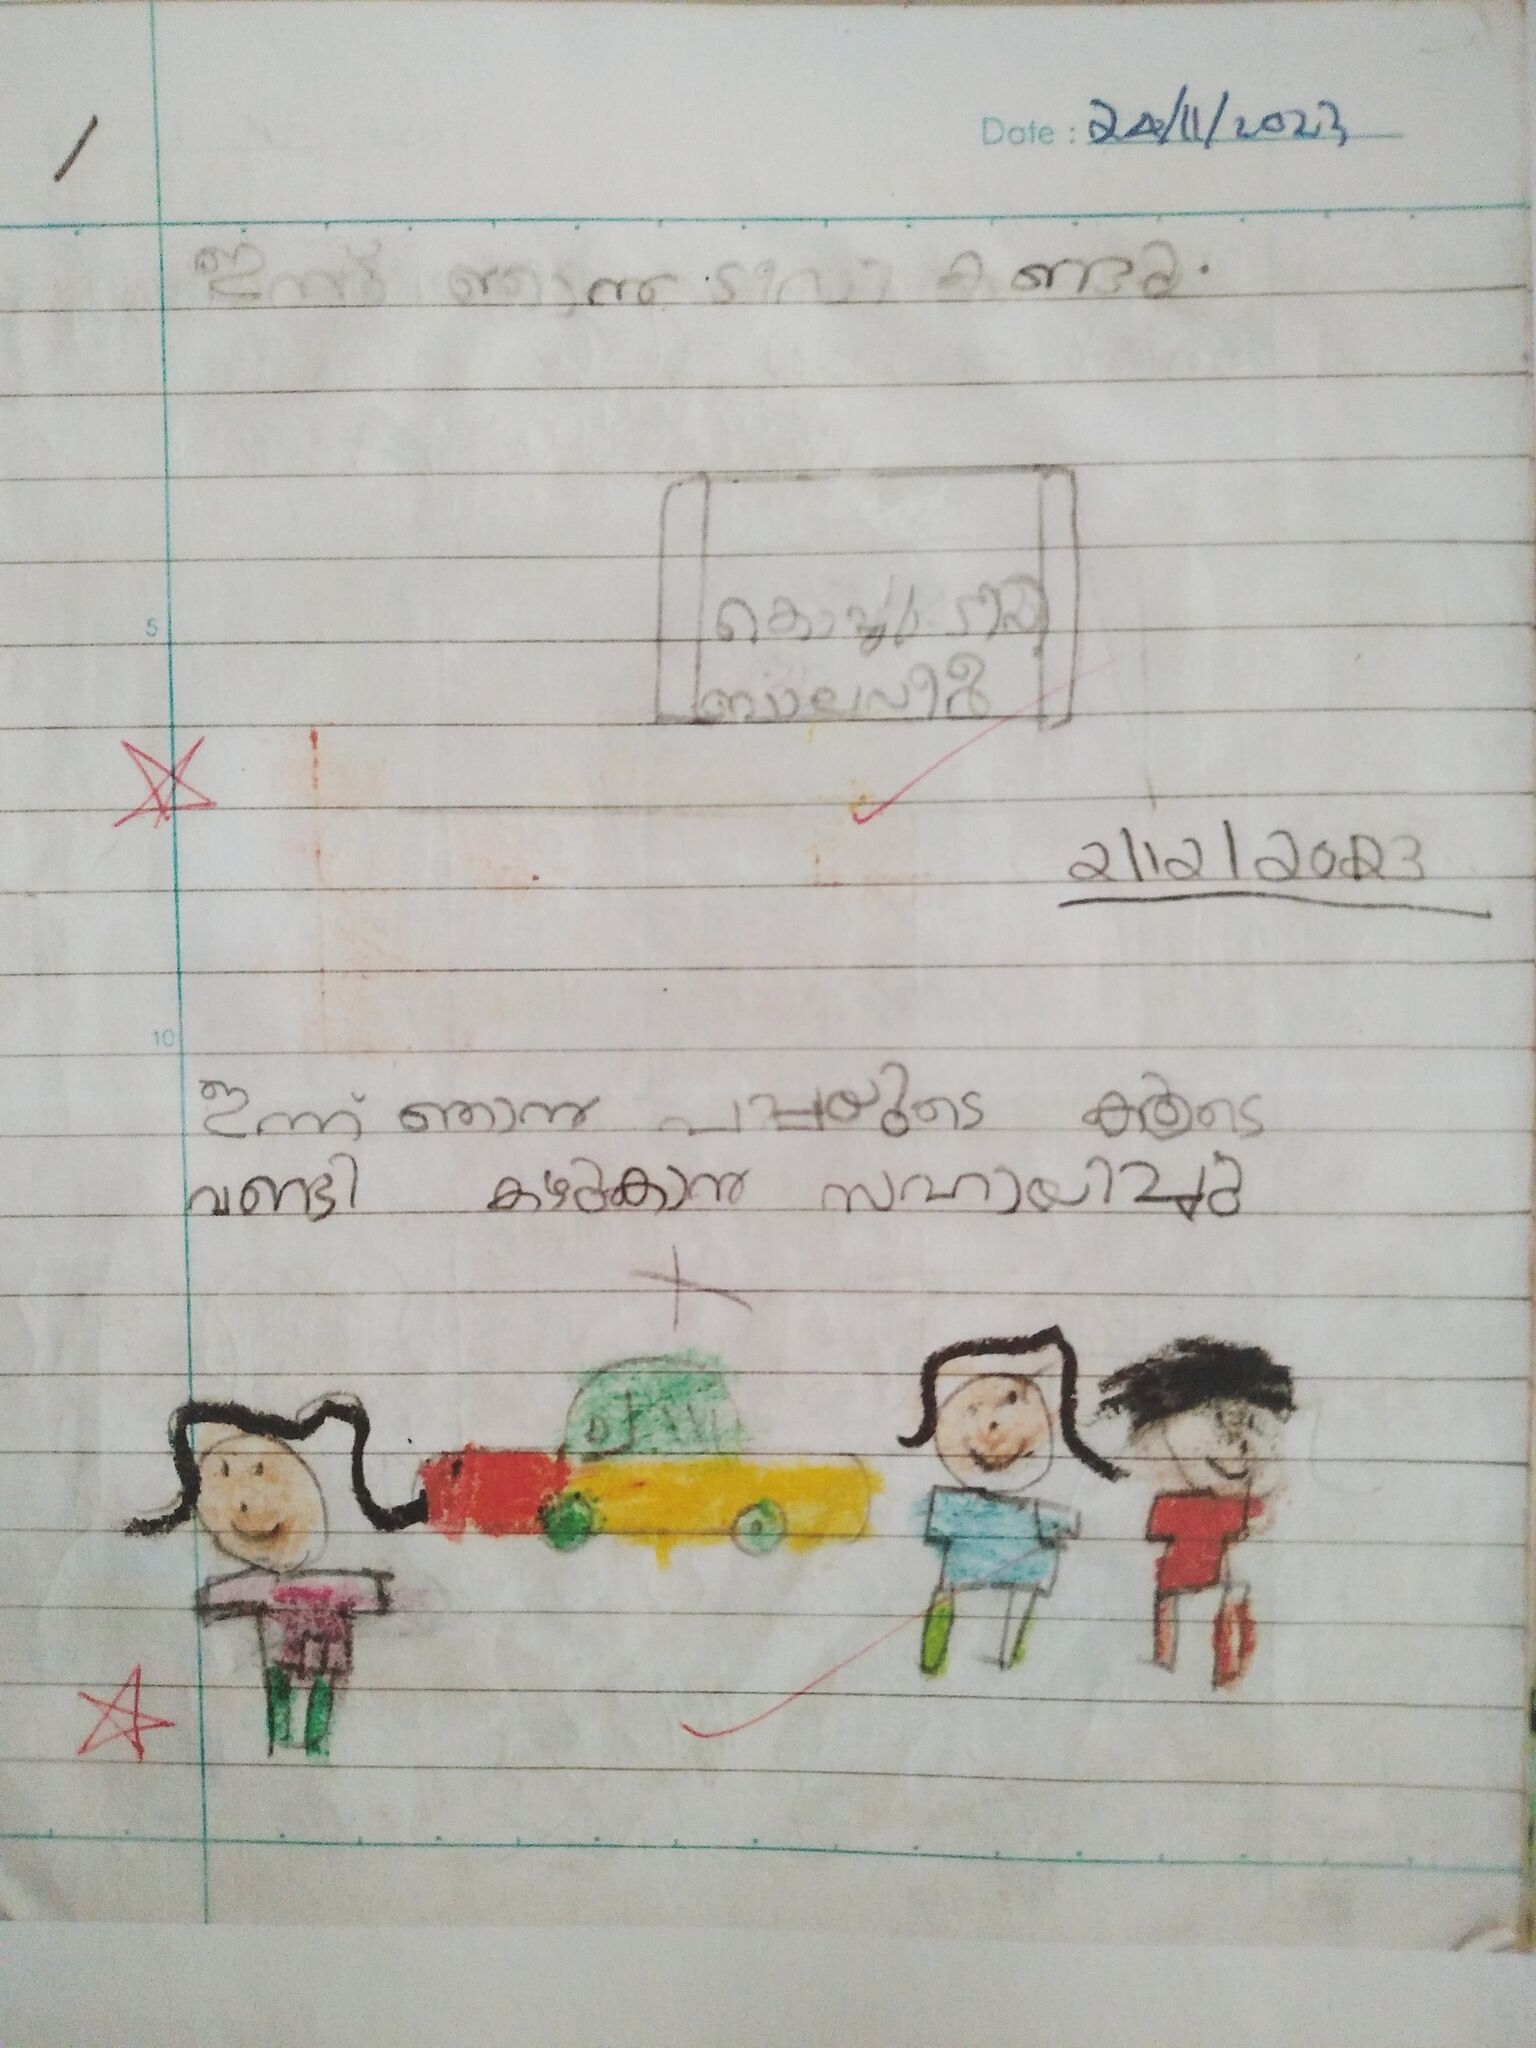 Date : 20/11/2023
ഇന്ന് ഞാൻ ടീവി കണ്ടു.
കൊച്ചു ടീവി
ബാലവീർ
5
2/12/2023
10
ഇന്ന് ഞാൻ പപ്പയുടെ കൂടെ
വണ്ടി കഴുകാൻ സഹായിച്ചു